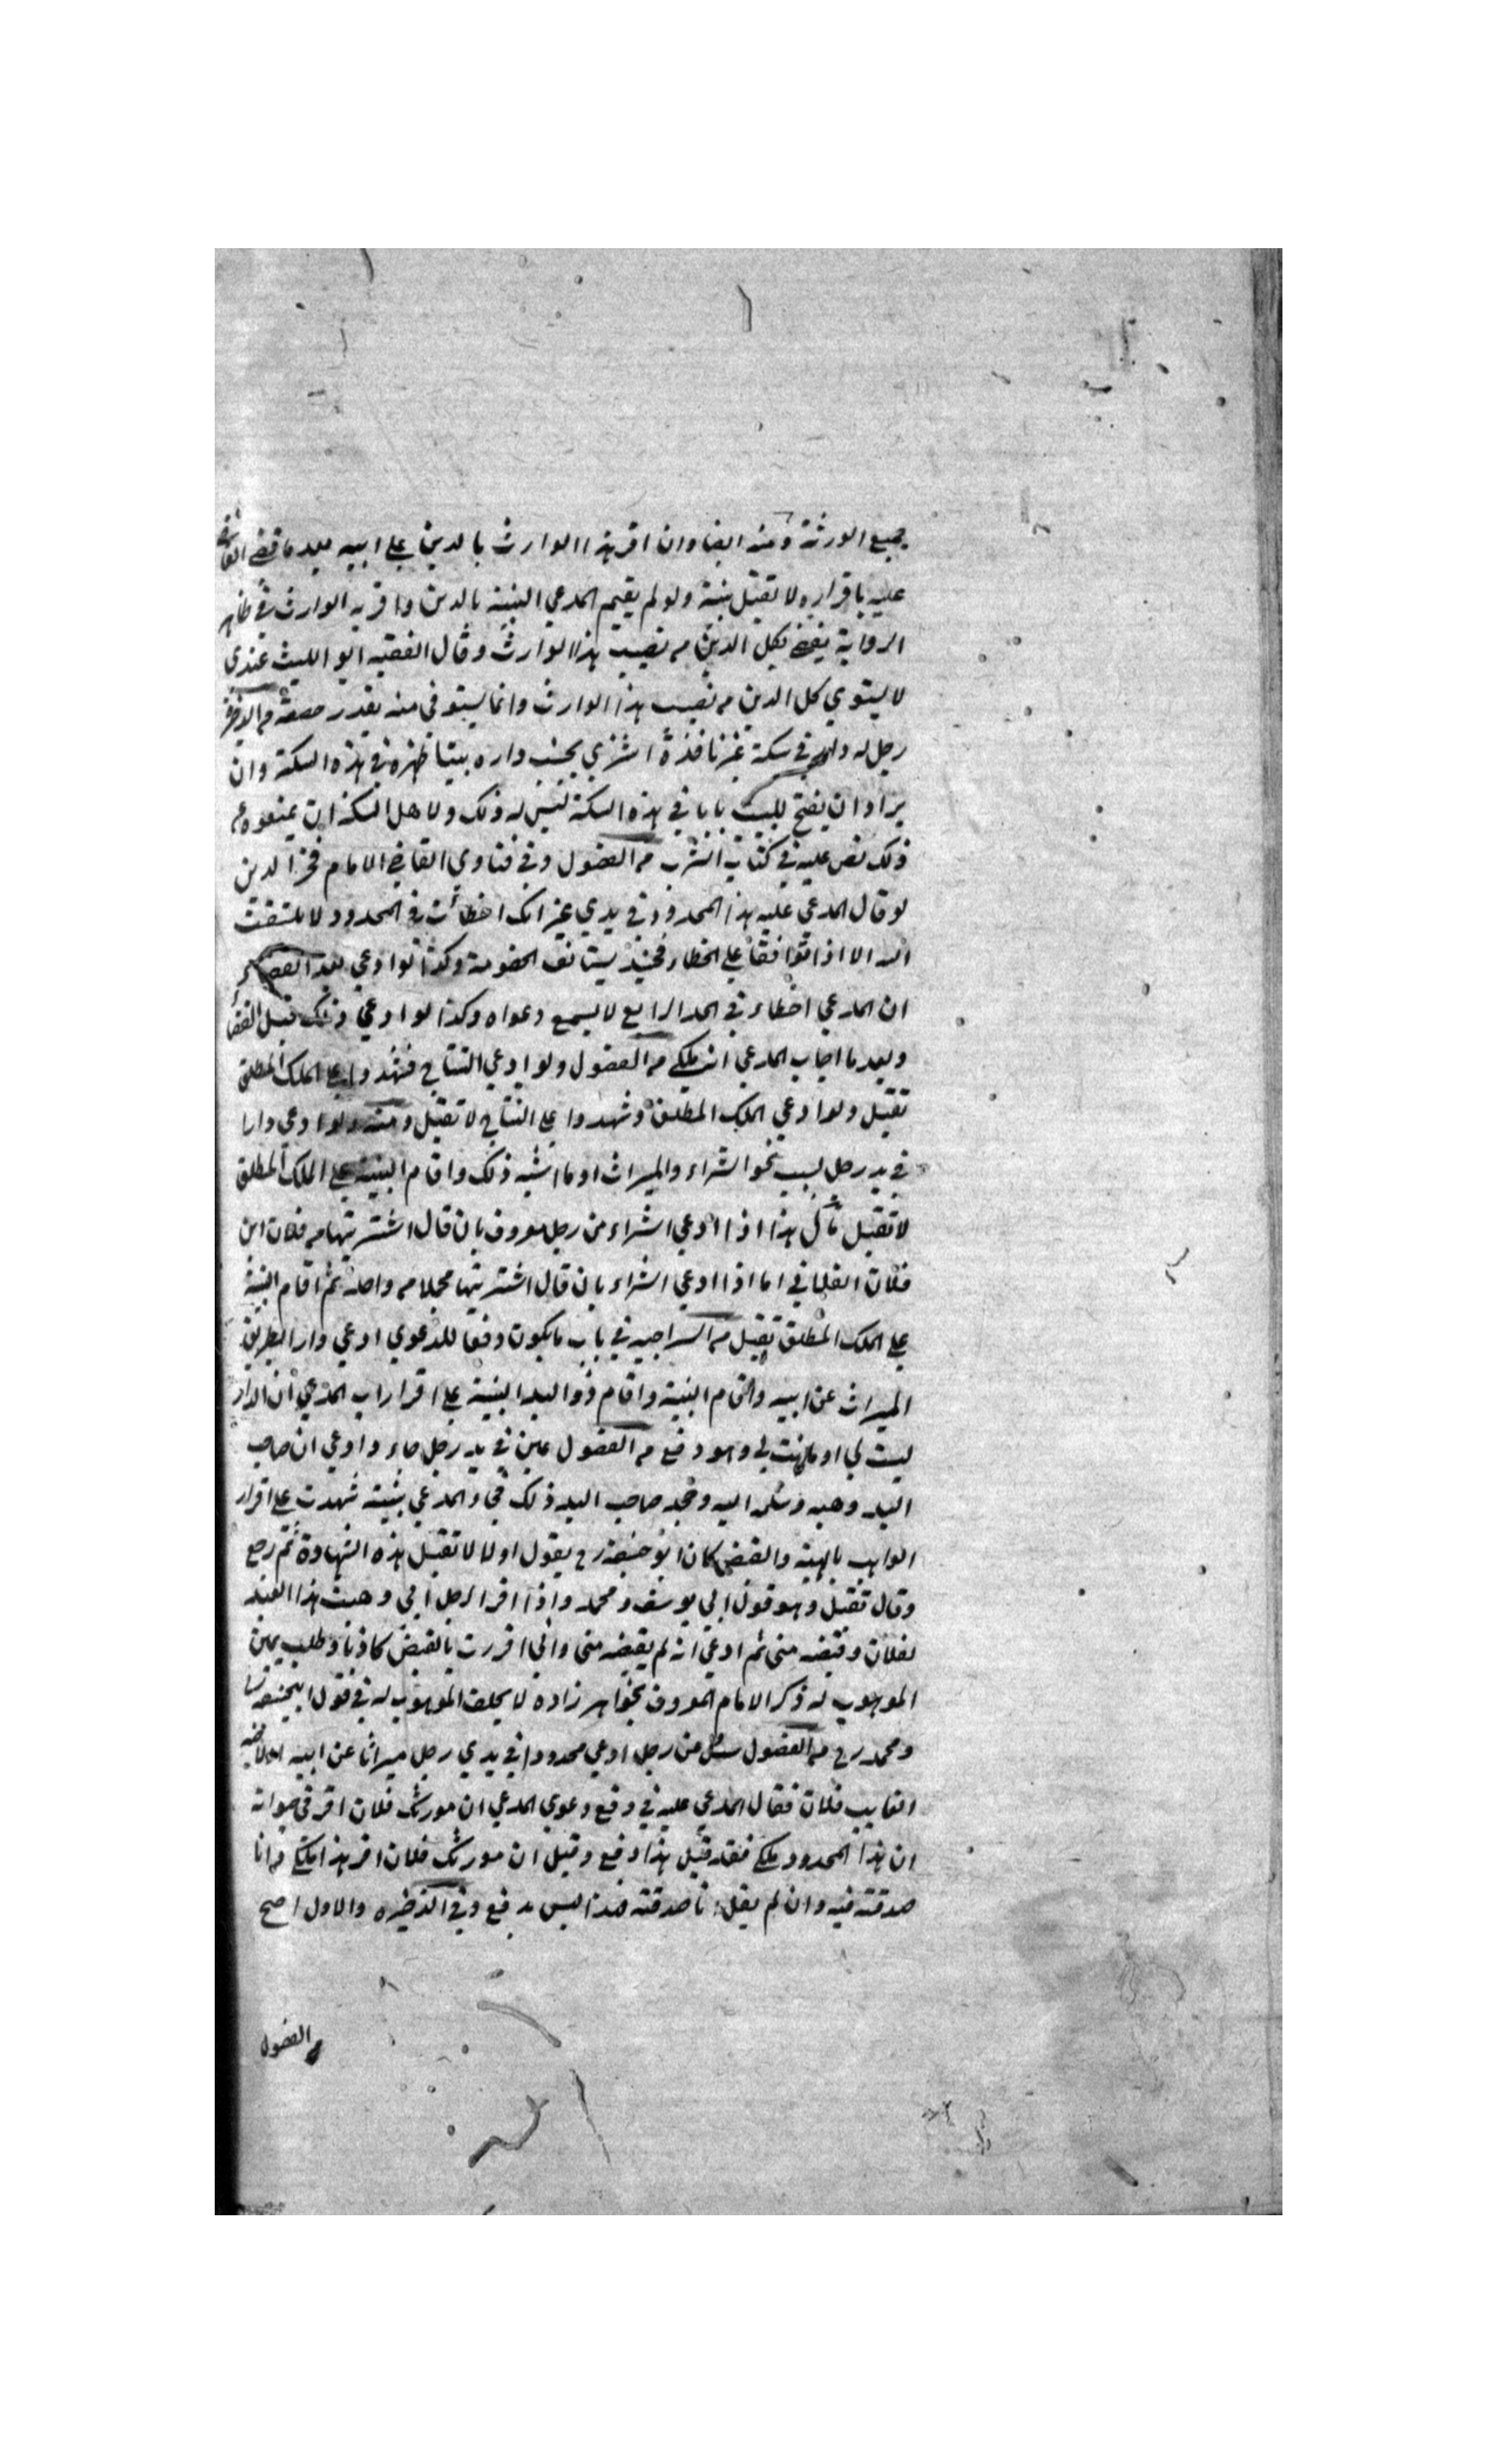 جميع الورثة ومنه ايضا وان اقر هذا الوارث بالدين على ابيه بعد ما قضى القاضي
عليه باقراره لا تقبل بينة ولو لم يقيم المدعي البينة بالدين واقر به الوارث في ظاهر
الرواية يقضى بكل الدين من نصيب هذا الوارث وقال الفقيه ابو الليث عندي
لا يستوي كل الدين من نصيب هذا الوارث وانما يستوفي منه بقدر حصته من
رجل له دار في سكة غير نافذة اشترى بجنب داره بيتا ظهره في هذه السكة وان
اراد ان يفتح للبيت بابا في هذه السكة ليس له ذلك ولاهل السكة ان يمنعوه عن
ذلك نص عليه في كتاب الشرب من الفصول وفي فتاوى القاضي الامام فخر الدين
لو قال المدعي عليه هذا المحدود في يدي غير انك اخطأت في الحدود لا يلتفت
اليه الا اذا توافقا على الخطاء فحينئذ يستانف الخصومة وكذا لو ادعى بعد القضاء
ان المدعي اخطاء في الحد الرابع لا يسمع دعواه وكذا لو ادعى ذلك قبل القضا
وبعد ما اجاب المدعي انه ملكي من الفصول ولو ادعى النتاج فشهدوا على الملك المطلق
تقبل ولو ادعى الملك المطلق وشهدوا على النتاج لا تقبل ومنه ولو ادعى دارا
في يد رجل بسبب نحو الشراء والميراث او ما اشبه ذلك واقام البينة على الملك المطلق
لا تقبل قال هذا اذا ادعى الشراء من رجل معروف بان قال اشتريتها من فلان ابن
فلان الفلاني اما اذا ادعى الشراء بان قال اشتريتها مجملا من واحد ثم اقام البينة
على الملك المطلق تقبل من السراجيه في باب ما يكون دفعا للدعوى ادعى دارا بطريق
الميراث عن ابيه واقام البينة واقام ذو اليد البينة على اقرار اب المدعي ان الدار
ليست لي او ما كانت لي وهو دفع من الفصول عين في يد رجل جاء وادعى ان صاحب
اليد وهبه وسلمه اليه وجحد صاحب اليد ذلك فجاء المدعي ببينة شهدت على اقرار
الواهب بالهبة والقبض كان ابو حنيفة رح يقول اولا لا تقبل هذه الشهادة ثم رجع
وقال تقبل وهو قول ابي يوسف ومحمد واذا اقر الرجل اني وهبت هذا العبد
لفلان وقبضه مني ثم ادعى انه لم يقبضه مني واني اقررت بالقبض كاذبا وطلب يمين
الموهوب له ذكر الامام المعروف بخواهر زاده لا يحلف الموهوب له في قول ابي حنيفة
ومحمد رح من الفصول سئل من رجل ادعى محدودا في يدي رجل ميراثا عن ابيه
الغايب فلان فقال المدعي عليه في دفع دعوى المدعي ان مورثك فلان اقر في حيواته
ان هذا المحدود ملكي فقد قيل هذا دفع وقيل ان مورثك فلان اقر بهذا ملكي وانا
صدقته فيه وان لم يقل انا صدقته فهذا ليس بدفع وفي الذخيره والاول اصح
من الفصول